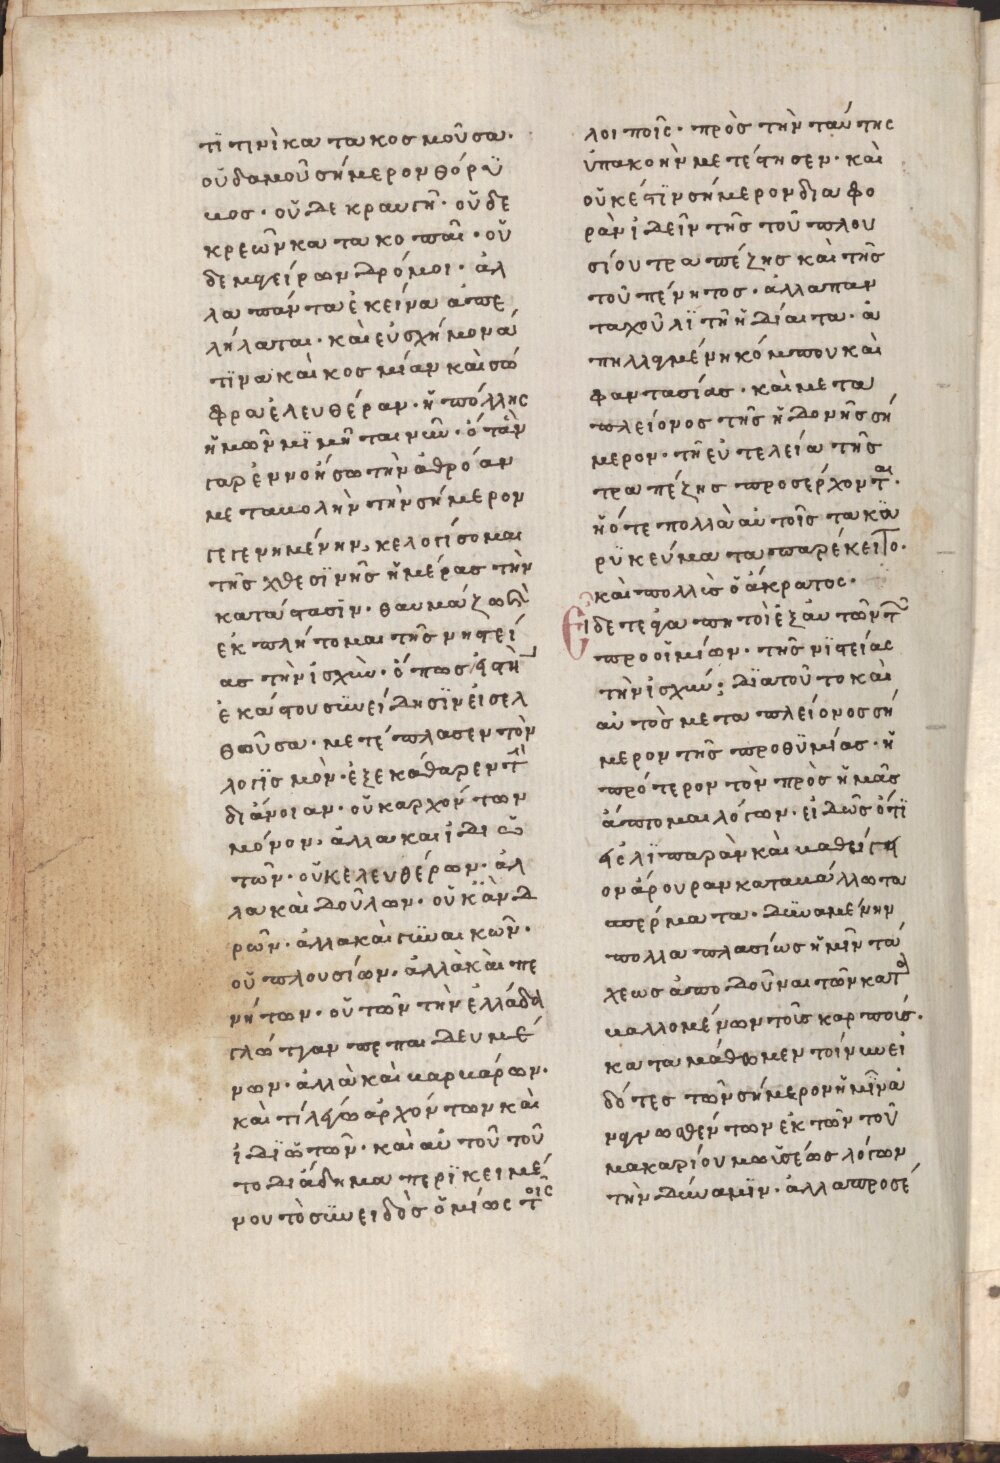 τϊ τινὶ κατακοσμοῦσα·
οὐδαμοῦ σήμερον θόρϋ
βος· οὔδε κραυγὴ· οὔδε
κρεῶν κατακοπαῖ· οὔ
δε μαγείρων δρόμοι· ἀλ
λα πάντα ἐκείνα ἀπε
λήλαται· καὶ εὐσχήμονά
τϊνα καὶ κοσμίαν καὶ σώ
φρα ἐλευθέραν· ἡ πόλλης
ἡμῶν μϊμῆται νῦν· ὁτὰν
γαρ ἐννοήσω τὴν ἀθρόαν
μεταβολὴν τὴν σήμερον
γεγενημένην, κε λογίσομαι
τῆς χθεσϊνῆς ἡμέρας τὴν
κατάστασϊν· θαυμάζω καὶ
ἐκπλήτομαι τῆς νηστεί
ας τὴν ἰσχὺν· ὅπως εἰς τὴν
ἑκάστου συνείδησϊν εἰσελ
θοῦσα· μετέπλασεν τὸν
λογϊσμὸν· ἐξεκαθαρεν τὴν
διάνοιαν· οὐκ αρχόντων
μόνον· ἀλλα και ἰδιω
τῶν· οὔκ ελευθέρων· ἀλ
λα καὶ δούλων· οὐκ ἀνδ
ρῶν· ἀλλα καὶ γυναικῶν·
οὐ πλουσίων· ἀλλὰ καὶ πε
νήτων· οὔ τῶν τὴν ἑλλάδα
γλώτταν πεπαιδευμέ
νων· ἀλλὰ καὶ βαρβάρων·
καὶ τί λέγω ἀρχόντων καὶ
ἰδϊῶτῶν· καὶ αὐτοῦ τοῦ
το διάδημα περϊκειμέ
νου τὸ συνειδὸς ὁμίως τοῖς
λοιποῖς· πρὸς τὴν ταύτης
ὑπακοὴν μετέστησεν· καὶ
οὐκέστϊν σήμερον διαφο
ρὰν ἰδεῖν τῆς τοῦ πλου
σίου τραπέζης καὶ τῆς
τοῦ πένητος· ἀλλα παν
ταχοῦ λϊτὴ ἡ δίαιτα· ἀ
πηλλαγμένη κόμπου καὶ
φαντασίας· καὶ μετα
πλείονος τῆς ἡδονῆς σή
μερον· τῆ εὐτελεία τῆς
τραπέζης προσέρχονται·
ἢ ότε πολλὰ αὐτοῖς τα καϊ
ρϋκεύματα παρέκειτο·
καὶ πολλϋς ὁ ἄκρατος·
Εἴδετε ἀγαπητοὶ ἐξ αυτῶν τῶν
προοἰμίων· τῆς νϊστείας
τὴν ἰσχύν; διατοῦτο καὶ
αὐτὸς μετα πλείονος σή
μερον τῆς προθϋμίας· ἢ
πρότερον τὸν πρὸς ἡμᾶς
ἅπτομαι λόγων· εἰδὼς ὅτϊ
εἰς λϊπαρὰν καὶ βαθεῖαν
ον ἄρουραν καταβάλλω τα
σπέρματα· δυναμένην
πολλαπλασίως ἡμῖν τα
χεως ἀποδοῦναι τῶν κατα
βαλλομένων τοῦς καρποὺς·
καταμάθωμεν τοίνυν εἰ
δότες τῶν σήμερον ἡμῖν ἀ
ναγνωσθέντων ἐκ τῶν τοῦ
μακαρίου μωϋσέως λόγων
τὴν δύναμϊν· ἀλλα προσέ